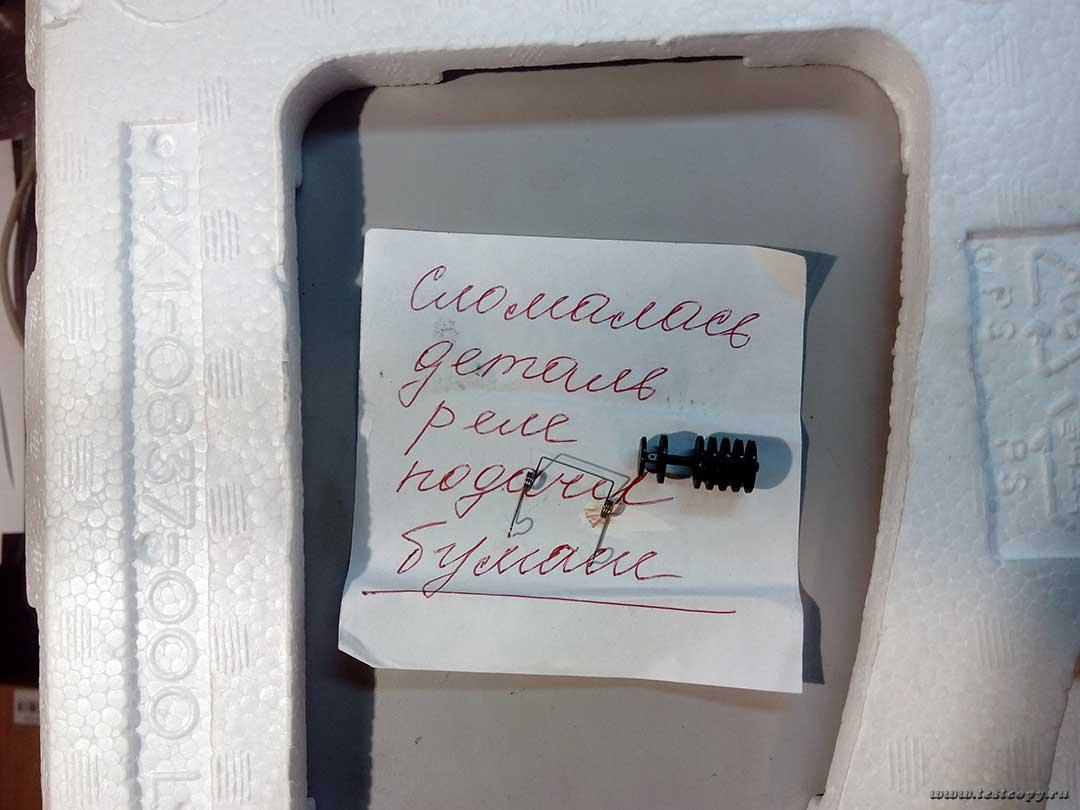 Сломалась
деталь
реле
подачи
бумаги
RX1-08375-000 L
PS
www.testcopy.ru